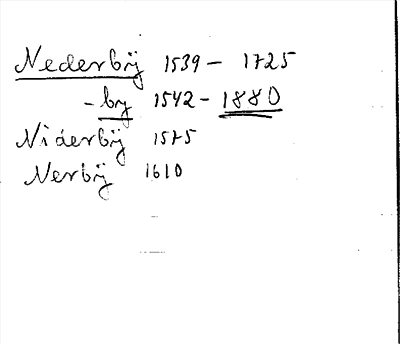 Nederbÿ 1539 - 1725
- by 1542 - 1880
Niderbÿ 1575
Nerbÿ 1610